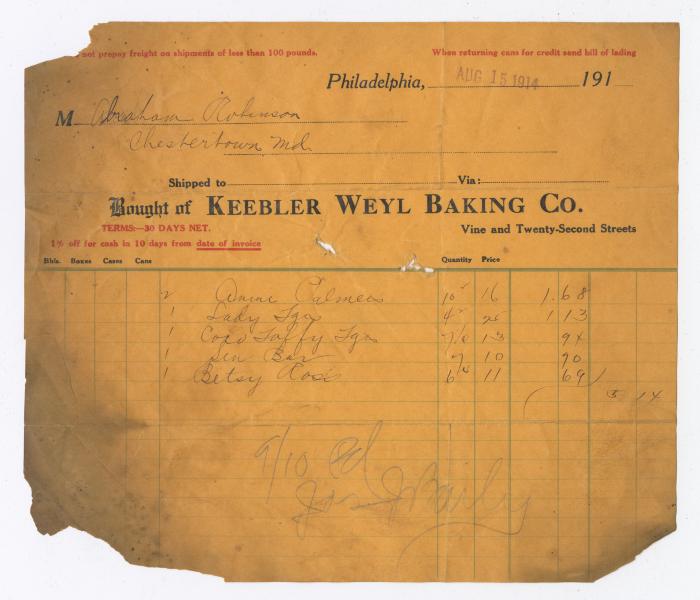 not prepay freight on shipments of less than 100 pounds. When returning cans for credit send bill of lading
Philadelphia, AUG 15 1914 191
M Abraham Robinson
Chestertown Md.
Shipped to Via:
Bought of KEEBLER WEYL BAKING CO.
TERMS:—30 DAYS NET. Vine and Twenty-Second Streets
1% off for cash in 10 days from date of invoice
Bbls. Boxes Cases Cans Quantity Price
2 10 16 1.68
1 Lady Fgs 4 1 13
1 Coco Taffy Fgs 13 94
1 Bar 10 90
1 Betsy Ross 6 11 69
5 14
9/10 Pd
Jos Bailey